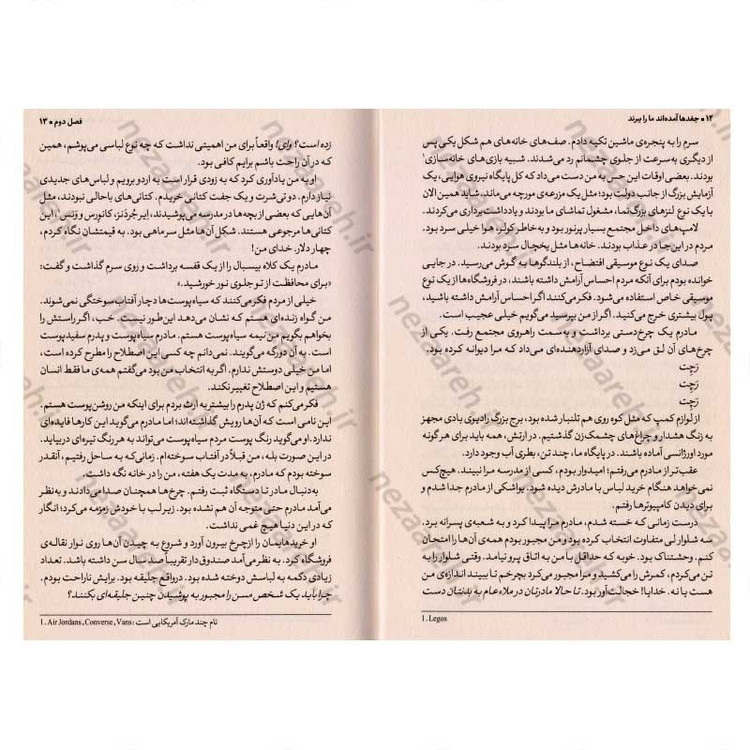 ۱۲ • جغدها آمده‌اند ما را ببرند
سرم را به پنجره‌ی ماشین تکیه دادم. صف‌های خانه‌های هم شکل یکی پس
از دیگری به‌سرعت از جلوی چشمانم رد می‌شدند. شبیه بازی‌های خانه‌سازی¹
بودند. بعضی اوقات این حس به من دست می‌داد که کل پایگاه نیروی هوایی، یک
آزمایش بزرگ از جانب دولت بود؛ مثل یک مزرعه‌ی مورچه می‌ماند. شاید همین الان
با یک نوع لنزهای بزرگ‌نما، مشغول تماشای ما بودند و یادداشت‌برداری می‌کردند.
لامپ‌های داخل مجتمع بسیار پرنور بود و به‌خاطر کولر، هوا خیلی سرد بود.
مردم در این‌جا در عذاب بودند. خانه‌ها مثل یخچال سرد بودند.
صدای یک نوع موسیقی افتضاح، از بلندگوها به گوش می‌رسید. در جایی
خوانده بودم برای آنکه مردم احساس آرامش داشته باشند، در فروشگاه‌ها از یک نوع
موسیقی خاص استفاده می‌شود. فکر می‌کنند اگر احساس آرامش داشته باشید،
پول بیشتری خرج می‌کنید. اگر از من بپرسید می‌گویم خیلی عجیب است.
مادرم یک چرخ‌دستی برداشت و به‌سمت راهروی مجتمع رفت. یکی از
چرخ‌های آن لق می‌زد و صدای آزاردهنده‌ای می‌داد که مرا دیوانه کرده بود.
رَچِت
رَچِت
رَچِت
از لوازم کمپ که مثل کوه روی هم تلنبار شده بود، برج بزرگ رادیوی بادی مجهز
به زنگ هشدار و چراغ‌های چشمک‌زن گذشتیم. در ارتش، همه باید برای هر گونه
مورد اورژانسی آماده باشند. در پایگاه ما، چند تن، بطری آب وجود دارد.
عقب‌تر از مادرم می‌رفتم؛ امیدوار بودم، کسی از مدرسه مرا نبیند. هیچ‌کس
نمی‌خواهد هنگام خرید لباس با مادرش دیده شود. یواشکی از مادرم جدا شدم و
برای دیدن کامپیوترها رفتم.
درست زمانی که خسته شدم، مادرم مرا پیدا کرد و به شعبه‌ی پسرانه برد.
سه شلوار لی متفاوت انتخاب کرده بود و من مجبور بودم همه‌ی آن‌ها را امتحان
کنم. وحشتناک بود. خوبه که حداقل با من به اتاق پرو نیامد. وقتی شلوار را به
تن می‌کردم، کمرش را می‌کشید و مرا مجبور می‌کرد بچرخم تا ببیند اندازه‌ی من
هست یا نه. خدایا! خجالت‌آور بود. تا حالا مادرتان در ملاء عام به بدنتان دست
1. Legos
فصل دوم • ۱۳
زده است؟ وای! واقعاً برای من اهمیتی نداشت که چه نوع لباسی می‌پوشم، همین
که در آن راحت باشم برایم کافی بود.
او به من یادآوری کرد که به زودی قرار است به اردو برویم و لباس‌های جدیدی
نیاز دارم. دو تی‌شرت و یک جفت کتانی خریدم. کتانی‌های باحالی نبودند، مثل
آن‌هایی که بعضی از بچه‌ها در مدرسه می‌پوشیدند، ایرجُردَنز، کانورِس و وَنس¹، این
کتانی‌ها مرجوعی هستند. شکل آن‌ها مثل سرماهی بود. به قیمتشان نگاه کردم،
چهار دلار. خدای من!
مادرم یک کلاه بیسبال را از یک قفسه برداشت و روی سرم گذاشت و گفت:
«برای محافظت از تو جلوی نور خورشید.»
خیلی از مردم فکر می‌کنند که سیاه‌پوست‌ها دچار آفتاب‌سوختگی نمی‌شوند.
من گواه زنده‌ای هستم که نشان می‌دهد این‌طور نیست. خب، اگر راستش را
بخواهم بگویم من نیمه سیاه‌پوست هستم. مادرم سیاه پوست و پدرم سفیدپوست
است. به آن دورگه می‌گویند. نمی‌دانم چه کسی این اصطلاح را مطرح کرده است،
اما من خیلی دوستش ندارم. اگر به انتخاب من بود می‌گفتم همه‌ی ما فقط انسان
هستیم و این اصطلاح تغییر نکند.
فکر می‌کنم که ژن پدرم را بیشتر به ارث بردم برای اینکه من روشن‌پوست هستم.
این نامی است که آن‌ها رویش گذاشته‌اند؛ اما مادرم می‌گوید این کارها فایده‌ای
ندارد. او می‌گوید رنگ پوست مردم سیاه‌پوست می‌تواند به هر رنگ تیره‌ای دربیاید.
در این صورت بله، من قبلاً در آفتاب سوخته‌ام. زمانی‌که به ساحل رفتیم، آنقدر
سوخته بودم که مادرم، به مدت یک هفته، من را در خانه نگه داشت.
به‌دنبال مادر تا دستگاه ثبت رفتم. چرخ‌ها همچنان صدا می‌دادند و به‌نظر
می‌آمد مادرم حتی متوجه آن هم نشده بود. زیر لب با خودش زمزمه می‌کرد؛ انگار
که در این دنیا هیچ غمی نداشت.
او خریدهایمان را از چرخ بیرون آورد و شروع به چیدن آن‌ها روی نوار نقاله‌ی
فروشگاه کرد. به نظر می‌آمد صندوق‌دار تقریباً صد سال سن داشته باشد. تعداد
زیادی دکمه به لباسش دوخته شده بود. درواقع جلیقه بود. برایش ناراحت بودم.
چرا باید یک شخص مسن را مجبور به پوشیدن چنین جلیقه‌ای بکنند؟
1. Air Jordans, Converse, Vans: نام چند مارک آمریکایی است
nezaareh.ir